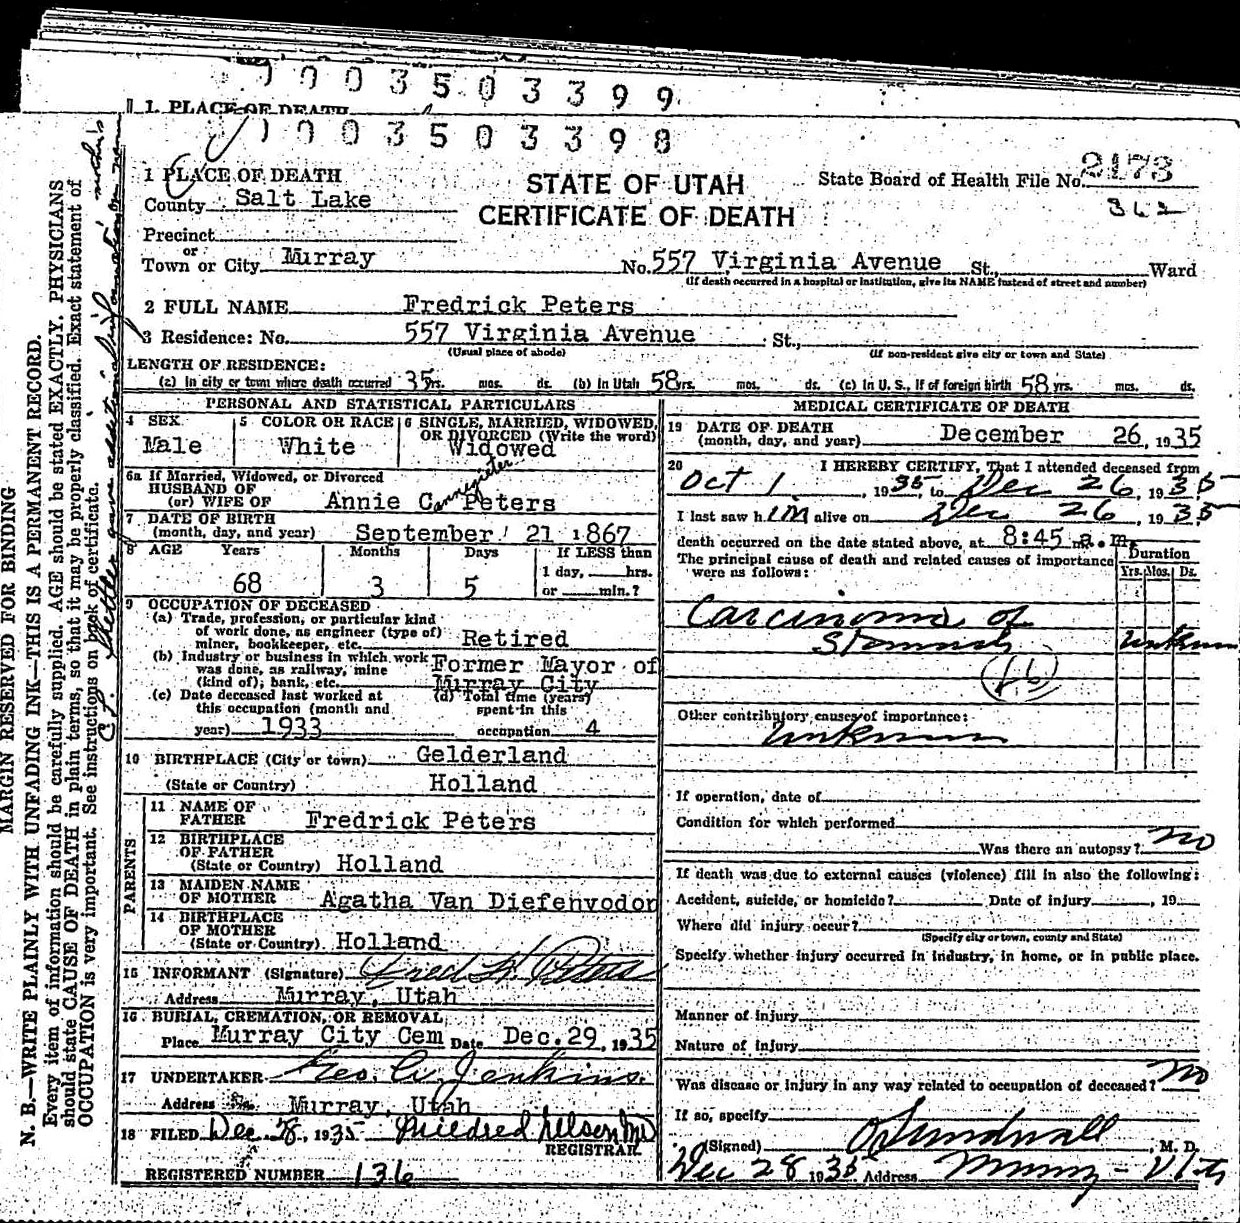 0003503399
1. PLACE OF DEATH
0003503398
1 PLACE OF DEATH
STATE OF UTAH
CERTIFICATE OF DEATH
State Board of Health File No. 2173
362
County Salt Lake
Precinct
or
Town or City Murray No. 557 Virginia Avenue St., Ward
(If death occurred in a hospital or institution, give its NAME instead of street and number)
2 FULL NAME Fredrick Peters
3 Residence: No. 557 Virginia Avenue St.,
(Usual place of abode) (If non-resident give city or town and State)
LENGTH OF RESIDENCE:
(a) In city or town where death occurred 35 yrs. mos. ds. (b) In Utah 58 yrs. mos. ds. (c) In U. S., if of foreign birth 58 yrs. mos. ds.
PERSONAL AND STATISTICAL PARTICULARS
4 SEX Male
5 COLOR OR RACE White
6 SINGLE, MARRIED, WIDOWED, OR DIVORCED (Write the word) Widowed
6a If Married, Widowed, or Divorced
HUSBAND OF
(or) WIFE OF Annie Peters
7 DATE OF BIRTH
(month, day, and year) September 21 1867
8 AGE Years 68 Months 3 Days 5 If LESS than
1 day, hrs.
or min.?
9 OCCUPATION OF DECEASED
(a) Trade, profession, or particular kind
of work done, as engineer (type of)
miner, bookkeeper, etc. Retired
(b) Industry or business in which work
was done, as railway, mine
(kind of); bank, etc. Former Mayor of
Murray City
(c) Date deceased last worked at
this occupation (month and
year) 1933
(d) Total time (years)
spent in this
occupation 4
10 BIRTHPLACE (City or town) Gelderland
(State or Country) Holland
PARENTS
11 NAME OF
FATHER Fredrick Peters
12 BIRTHPLACE
OF FATHER
(State or Country) Holland
13 MAIDEN NAME
OF MOTHER Agatha Van Diefenvodor
14 BIRTHPLACE
OF MOTHER
(State or Country) Holland
15 INFORMANT (Signature) Fred H. Peters
Address Murray, Utah
16 BURIAL, CREMATION, OR REMOVAL
Place Murray City Cem Date Dec. 29, 1935
17 UNDERTAKER Geo. A. Jenkins.
Address Murray, Utah
18 FILED Dec 28, 1935 Mildred Nelson MD
REGISTRAR
REGISTERED NUMBER 136
MEDICAL CERTIFICATE OF DEATH
19 DATE OF DEATH
(month, day, and year) December 26, 1935
20 I HEREBY CERTIFY, That I attended deceased from
Oct 1, 1935, to Dec 26, 1935
I last saw him alive on Dec 26, 1935
death occurred on the date stated above, at 8:45 a.m.
The principal cause of death and related causes of importance
were as follows:
Duration
Yrs. Mos. Ds.
Carcinoma of
Stomach unknown
(46)
Other contributory causes of importance:
Unknown
If operation, date of
Condition for which performed
Was there an autopsy? no
If death was due to external causes (violence) fill in also the following:
Accident, suicide, or homicide? Date of injury , 19
Where did injury occur?
(Specify city or town, county and State)
Specify whether injury occurred in industry, in home, or in public place.
Manner of injury
Nature of injury
Was disease or injury in any way related to occupation of deceased? no
If so, specify
(Signed) Sundwall, M. D.
Dec 28 1935 Address Murray - Utah
MARGIN RESERVED FOR BINDING
N. B.—WRITE PLAINLY WITH UNFADING INK—THIS IS A PERMANENT RECORD.
Every item of information should be carefully supplied. AGE should be stated EXACTLY. PHYSICIANS
should state CAUSE OF DEATH in plain terms, so that it may be properly classified. Exact statement of
OCCUPATION is very important. See instructions on back of certificate.